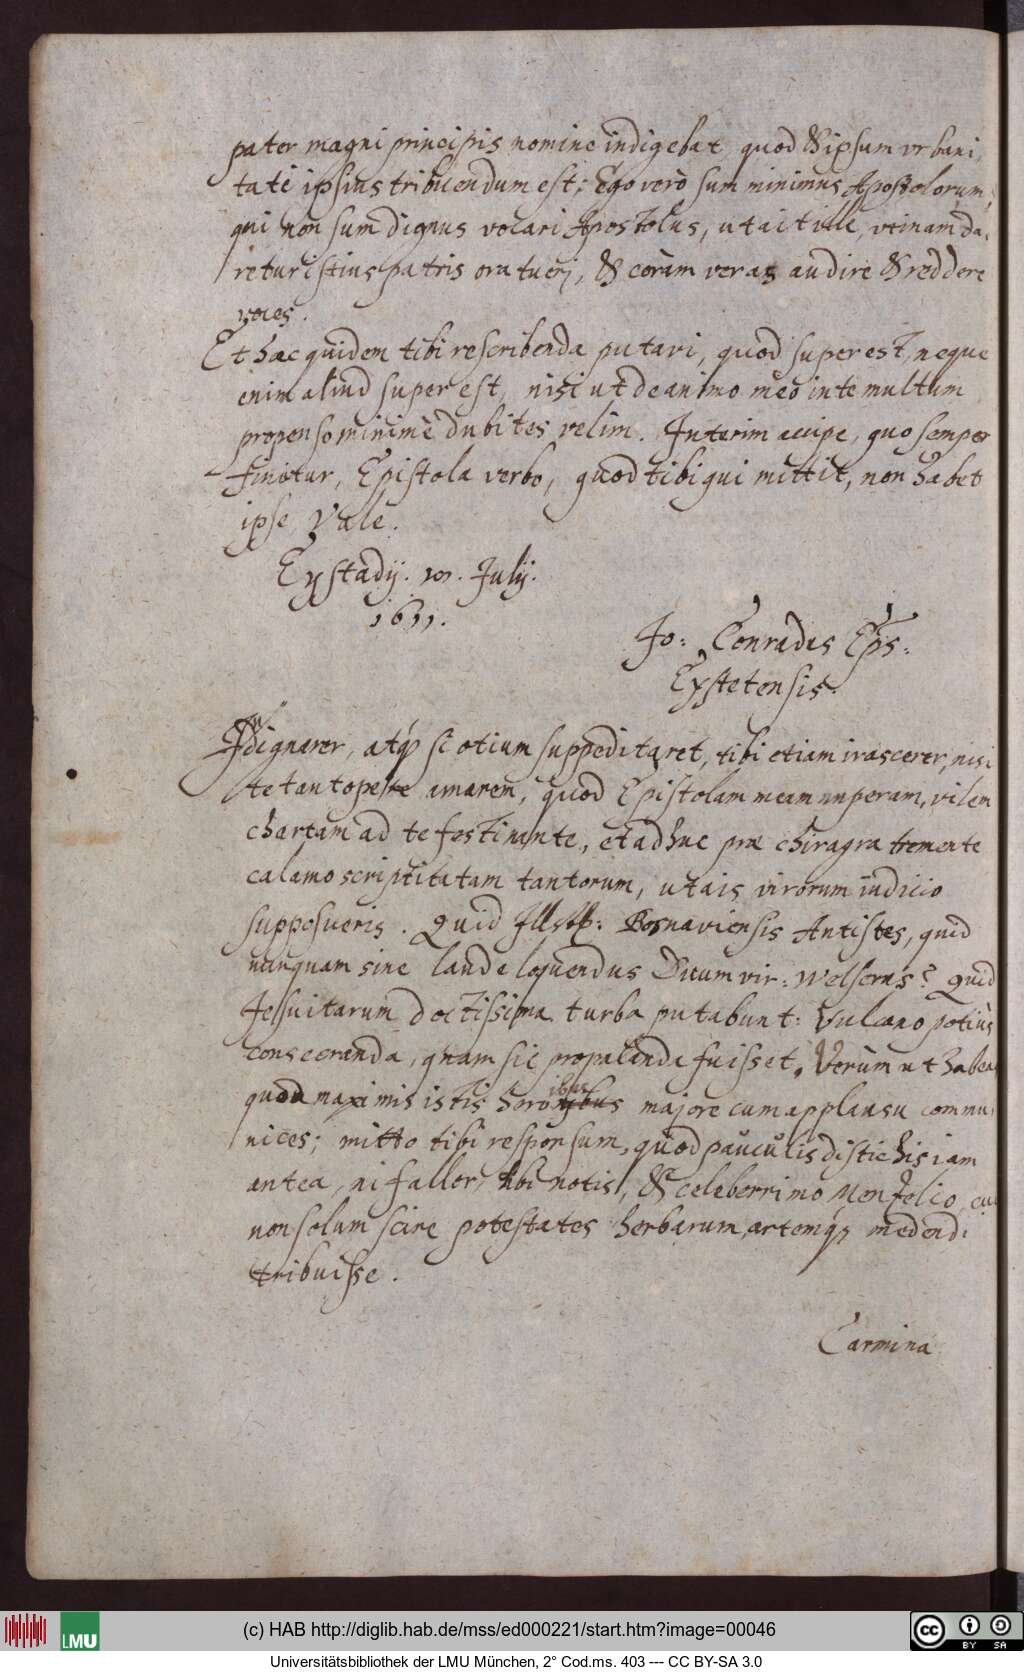 pater magni principis nomine indigebat, quod & ipsum urbani,
tati ipsius tribuendum est: Ego verò sum minimus Apostolorum,
qui non sum dignus vocari Apostolus, ut ait ille, vtinam da,
retur istius patris ora tueri, & coràm veras audire & reddere
voces.
Et hæc quidem tibi rescribenda putavi, quod superest, neque
enim aliud superest, nisi ut de animo meo in te multum
propenso minimè dubites velim. Interim accipe, quo semper
finitur, Epistola verbo, quod tibi qui mittit, non habet
ipse Vale.
Eystadij. Julij.
1611.
Jo: Conradus Eps:
Eystetensis.
Indignarer, atq3 si otium suppeditaret, tibi etiam irascerer, nisi
te tantopere amarem, quod Epistolam meam nuperam, vilem
chartam ad te festinante, et adhuc præ chiragra tremente
calamo scriptitatam tantorum, ut ais, virorum iudicio
supposueris. Quid Bosnaviensis Antistes, quid
nunquam sine laude loquendus Duumvir: Welserus? Quid
Jesuitarum doctissima turba putabunt: Vulcano potiùs
consecranda, quam sic propalanda fuisset. Verùm ut habeas
quod maximis istis heroibus majore cum applausu commu,
nices; mitto tibi responsum, quod pauculis distichis iam
antea, ni fallor, tibi notis, & celeberrimo Menzelio, cui
non solum scire potestates herbarum, artemq3 medendi
tribuisse.
Carmina
(c) HAB http://diglib.hab.de/mss/ed000221/start.htm?image=00046
LMU
cc BY SA
Universitätsbibliothek der LMU München, 2° Cod.ms. 403 --- CC BY-SA 3.0